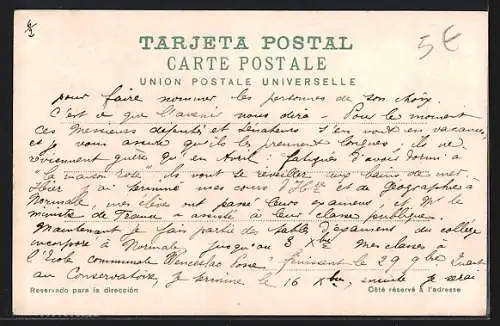 5€
TARJETA POSTAL
CARTE POSTALE
UNION POSTALE UNIVERSELLE
pour faire nommer les personnes de son choix.
C'est ce que l'avenir nous dira - Pour le moment
ces Messieurs députés et Sénateurs s'en vont en vacances,
et je vous assure qu'ils les prennent longues, ils ne
reviennent guère qu'en Avril: fatigués d'avoir dormi à
"la maison", ils vont se réveiller aux bains de mer.
Hier j'ai terminé mes cours d'H. et de Géographie à
Normale, mes élèves ont passé leurs examens, et Mr le
ministre de France a assisté à leur classe publique.
Maintenant je fais partie des tables d'examens du collège
incorporé à Normale, jusqu'au 3 Xbre mes classes à
l'Ecole communale "Wenceslao Posse" finissent le 29 9bre Quant
au Conservatoire, je termine le 16 Xbre, ensuite je serai
Reservado para la dirección
Côté réservé à l'adresse